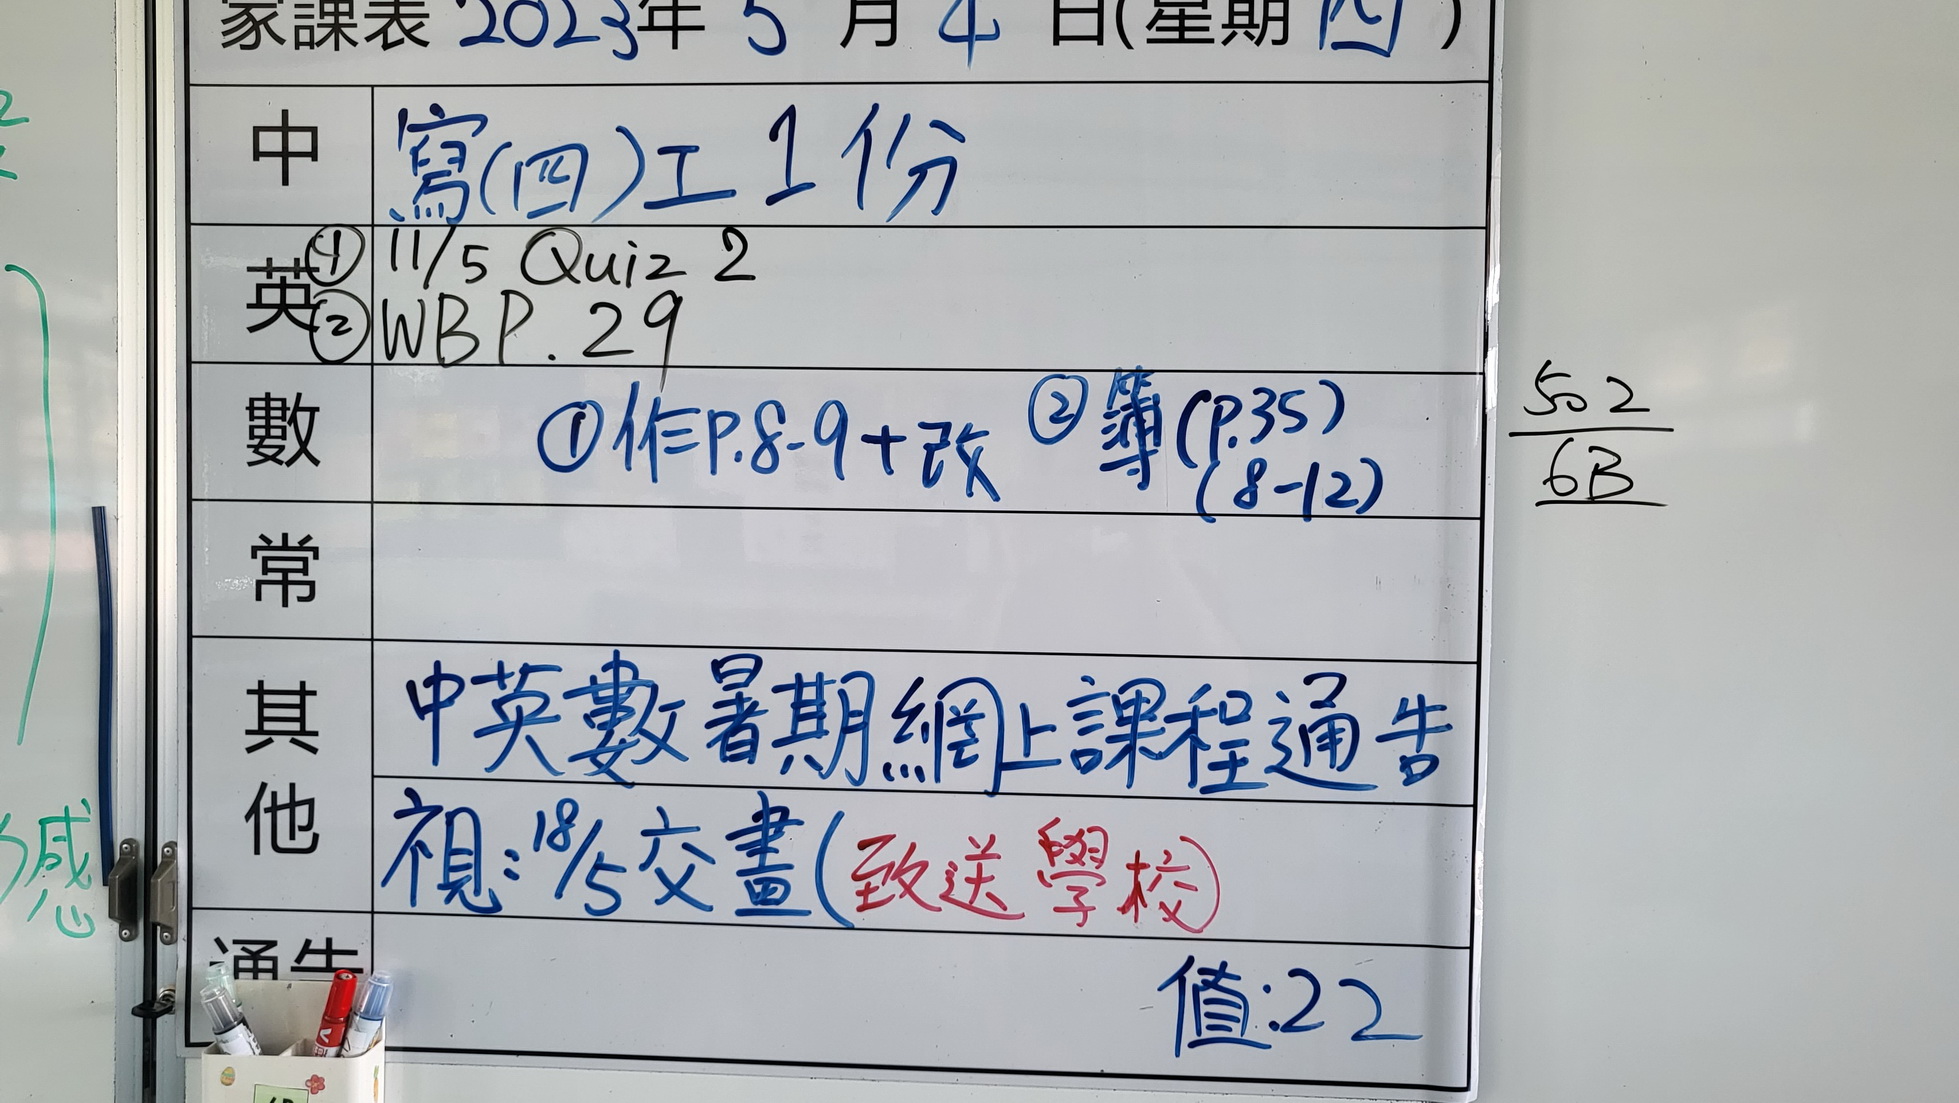 家課表 2023年 5 月 4 日(星期 四 )
中 寫(四)工 1 份
英 ① 11/5 Quiz 2
② WB P. 29
數 ①作P.8-9+改 ②簿(P.35)
(8-12)
502
6B
常
其他 中英數暑期網上課程通告
視:18/5交畫(致送學校)
通告 值:22
感